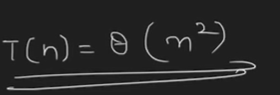 T(n) = θ (n²)